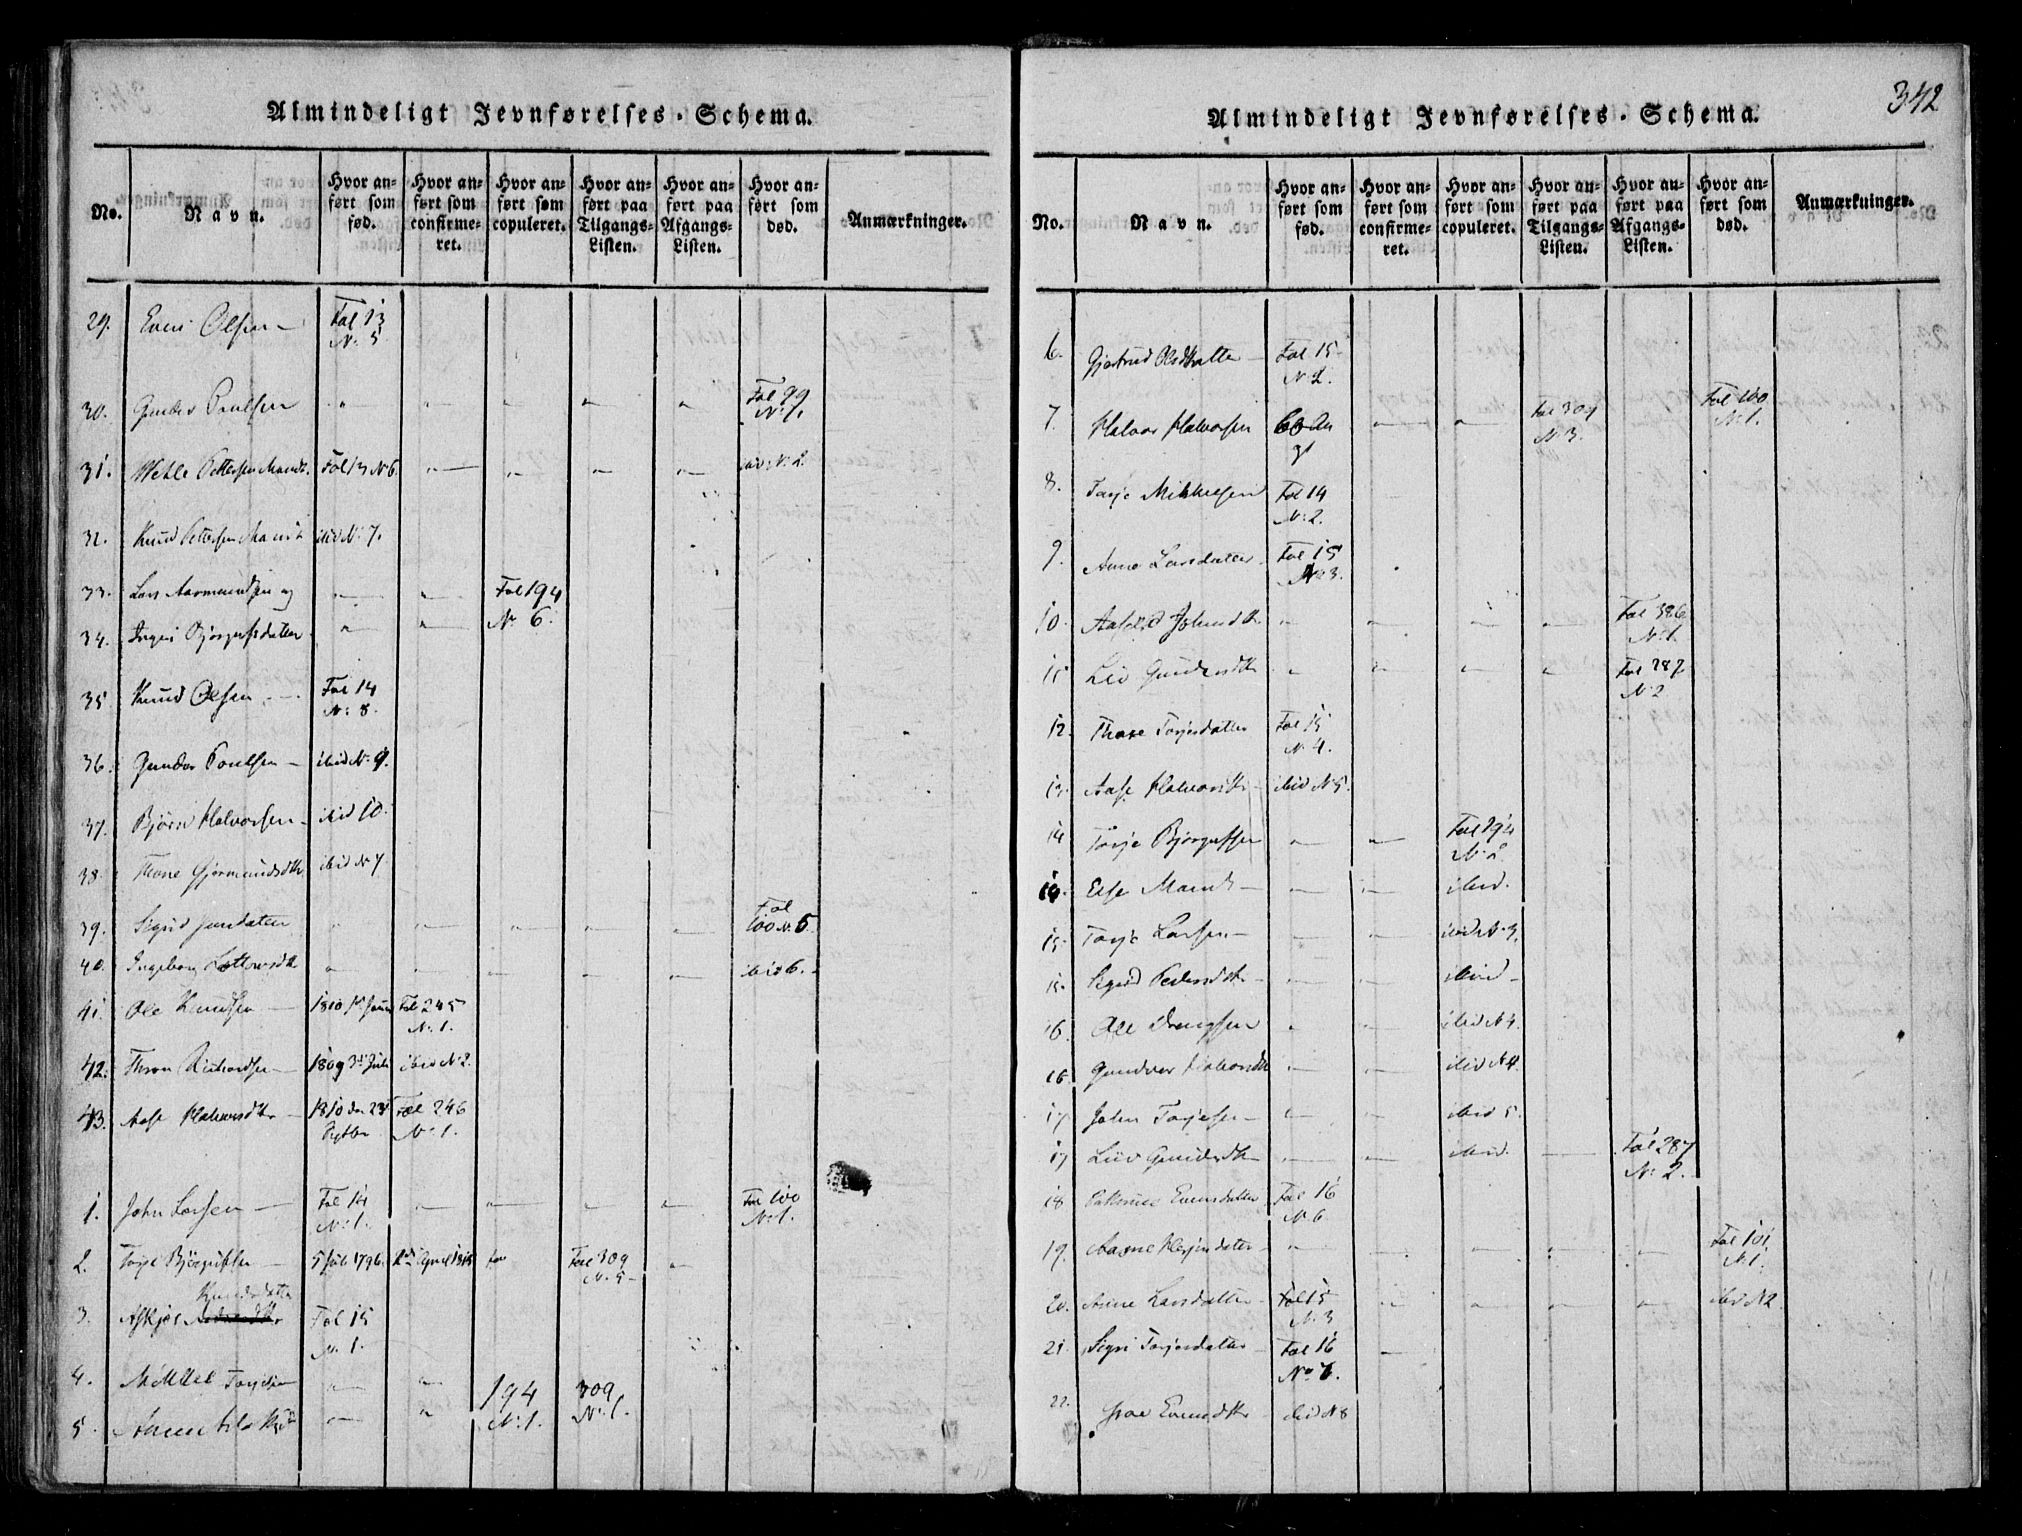 Almindeligt Jevnførelses-Schema.
No. Navn. Hvor anført som fød. Hvor anført som confirmeret. Hvor anført som copuleret. Hvor anført paa Tilgangs-Listen. Hvor anført paa Afgangs-Listen. Hvor anført som død. Anmærkninger.
29. Even Olsen — Fol 13 N: 5
30. Gunder Poulsen " " " " " Fol 99 N: 1.
31. Wetle Pettersen Mandt. Fol 13 N 6. — " — " ibid N: 2.
32. Knud Pettersen Mandt ibid N: 7.
33. Lars Aamundsen og — " Fol 194
34. Inger Bjørgufsdatter " " N: 6.
35 Knud Olsen — Fol 14 N: 8.
36. Gunder Poulsen — ibid N: 9.
37. Bjørn Halvorsen — ibid 10.
38. Thone Gjermundsdtr ibid N 7
39. Sigrid Jensdatter " — " " — Fol 100 N: 5.
40. Ingeborg " — — — — ibid 6.
41. Ole Knudsen — 1810 Fol 245 N: 1.
42. 1809 3d Juli ibid N: 2.
43. Aase Halvorsdtr — 1810 den 23d Fol 246 N: 1.
1. John Larsen — Fol 14 N: 1. — — — — Fol 100 N: 1.
2. Torje Bjørgufsen 5 Juli 1796. April 1815 Fol 309 N: 5 — "
3. Askjer Knudsdatter Fol 15 N: 1.
4. Mikkel Torjesen — " 194 309
5. Anne — " N: 1. N: 1.
342
Almindeligt Jevnførelses-Schema.
No. Navn. Hvor anført som fød. Hvor anført som confirmeret. Hvor anført som copuleret. Hvor anført paa Tilgangs-Listen. Hvor anført paa Afgangs-Listen. Hvor anført som død. Anmærkninger.
6. Gjertrud Olsdtatter — Fol 15 N: 2.
7. Halvor Halvorsen — — Fol 309 N: 3. Fol 100 N: 1.
8. Torje Mikkelsen Fol 14 N: 2.
9. Anne Larsdatter. Fol 15 N: 3.
10. " — — — Fol 386 N: 1.
11 Liv Gundersdtr " — — " Fol 287 N: 2
12. Thore Torjesdatter Fol 15 N: 4.
13. Aase Halvorsdtr — ibid N 5.
14 Torje Bjørgufsen — " Fol 194 N: 2.
14. Else Mandt — — — ibid.
15. Torje Larsen — — — ibid N: 3.
15. Sigrid Pedersdtr — — — ibid —
16. Ole " " ibid N 4.
16. Gundvor Halvorsdtr — — ibid N 4.
17 John Torjesen — — — ibid 5.
17 Liv Gundersdtr — — — ibid. — Fol 287 N: 2.
18 Evensdatter Fol 16 N: 6
19. Aasne — " — — — — Fol 101 N: 1.
20. Anne Larsdatter — Fol 15 N: 3 — — — — ibid N 2.
21. Sigri Torjesdatter — Fol 16 N: 7. —
22. Evensdtr — ibid N 8